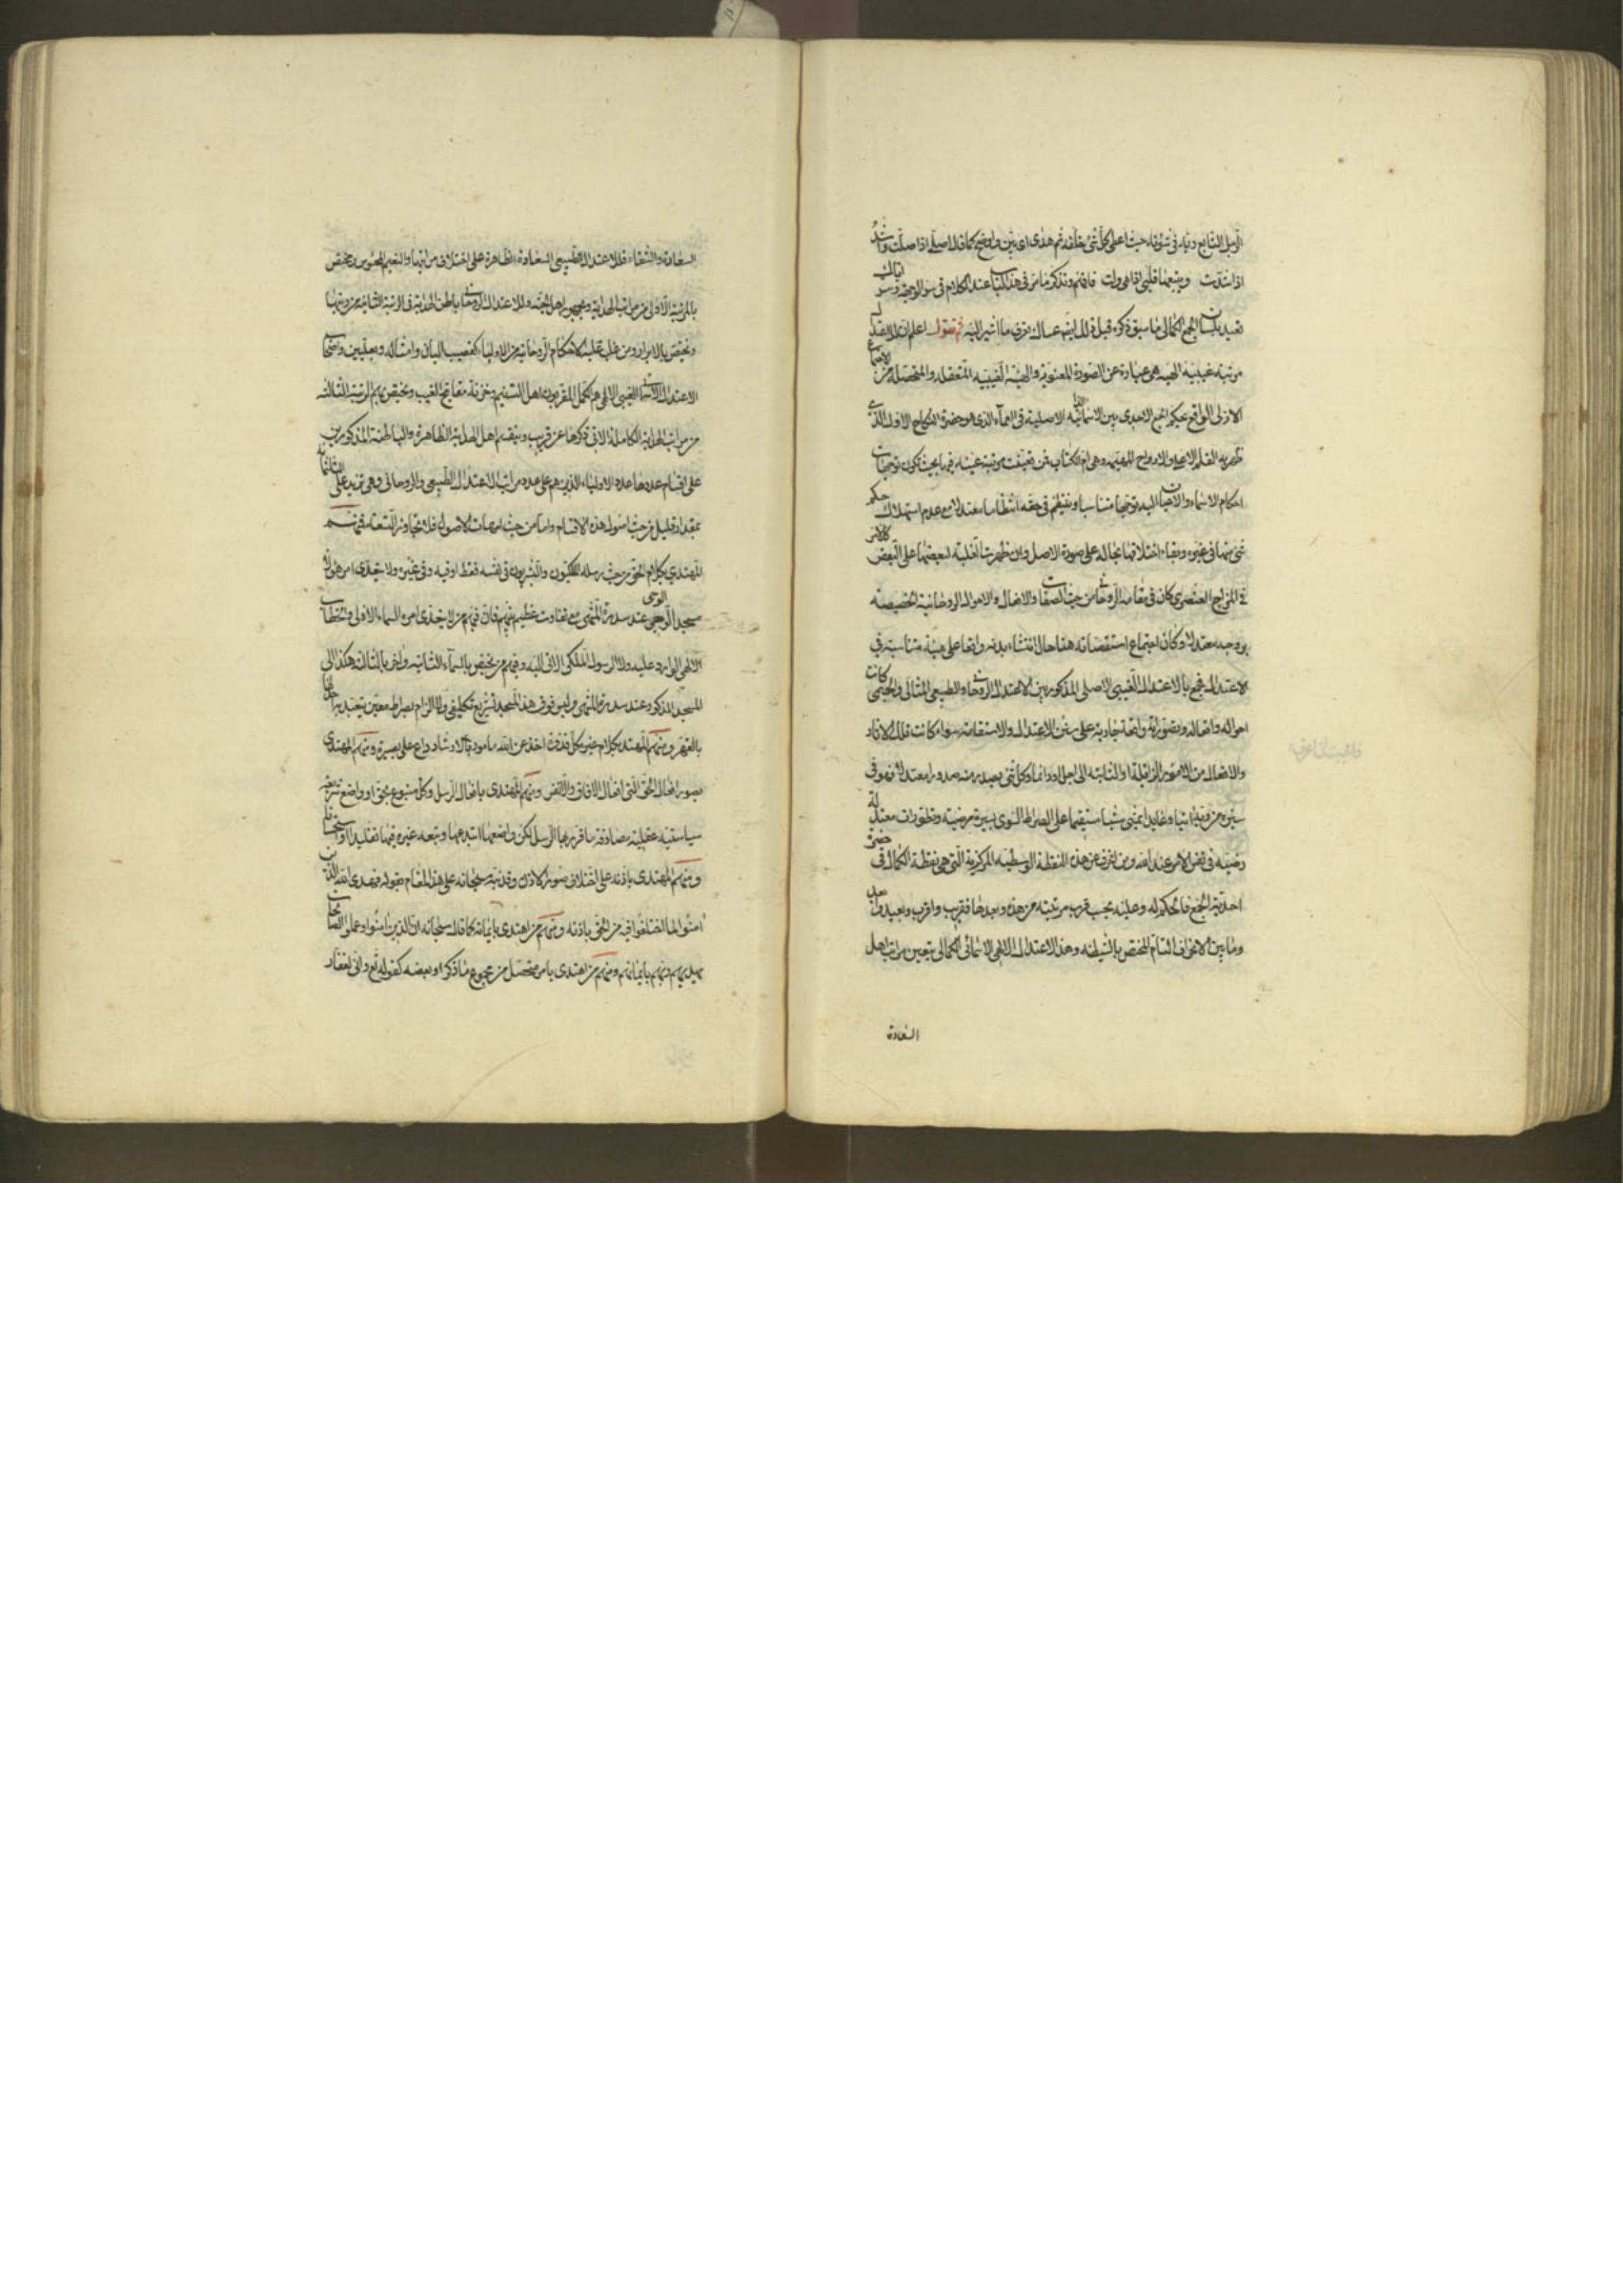 اذا شدت ويتبعها قلبي اذا هي ولت فافهم وتذكر ما مر في هذا الكتاب عند الكلام في سر الوجهة وسر اياك
نعبد بلسان الجمع الكمالي ما سبق ذكره قبل ذلك ايضا عساك تعرف ما اشير اليه ثم نقول اعلم ان للاعتدال
مرتبة غيبية الهية هي عبارة عن الصورة المعنوية والهيئة الغيبية المتعقلة والمتحصلة من الاجتماع
الازلي الواقع بحكم الجمع الاحدي بين الاسمائية الاصلية في العماء الذي هو حضرة النكاح الاول الذي
ظهر به القلم الاعلى والارواح المهيمة وهي ام الكتاب فمن تعينت مرتبة عينه فيها بحيث تكون توجهات
احكام الاسماء والاعيان اليه توجها متناسبا وينتظم في حقه انتظاما معتدلا مع عدم استهلاك حكم
شيء منها في غيره وبقاء اختلافها بحاله على صورة الاصل وان ظهرت الغلبة لبعضها على البعض كالامر
في المزاج العنصري كان في مقامه الروحاني من حيث الصفات والافعال والاحوال الروحانية الخصيصة
بروحه معتدلا وكان اجتماع استقصاته هنا حال انتشاء بدنه واقعا على هيئة متناسبة في
الاعتدال فجمع بالاعتدال الغيبي الاصلي المذكور بين الاعتدال الروحاني والطبيعي المثالي والحسي كانت
احواله وافعاله وتصوراته واقعة جارية على سنن الاعتدال والاستقامة سواء كانت تلك الاثار
والافعال من الامور الزائلة او الثابتة الى اجل او دائما وكل شيء يصدر منه صدورا معتدلا فهو في
سيره من وتدبيراتها وغايدا يمشي مشيا مستقيما على الصراط السوي بسيرة مرضية وتطورات معتدلة
رضية في نفس الامر عند الله ومن انحرف عن هذه النقطة الوسطية المركزية التي هي نقطة الكمال في حضرة
احدية الجمع فالحكم له وعليه بحسب قرب مرتبته من هذه وبعدها فقريب واقرب وبعيد وابعد
وما بين الانحراف التام المختص بالشيطنة وهذا الاعتدال الالهي الاسمائي الكمالي يتعين مراتب اهل
السعادة
السعادة والشقاء فللاعتدال الطبيعي السعادة الظاهرة على اختلاف مراتبها والنعيم المحسوس ويختص
بالمرتبة الاولى من مراتب الهداية وبجمهور اهل الجنة وللاعتدال الروحاني باطن الهداية في الرتبة الثانية من رتبها
ويختص بالابرار ومن غلبت عليه الاحكام الروحانية من الاولياء كقضيب البان وامثاله وبعليين واصحاب
الاعتدال الاسمائي الغيبي الالهي هم الكمل المقربون اهل التسنيم وخزنة مفاتح الغيب ويختص بهم المرتبة الثالثة
من مراتب الهداية الكاملة الاتي ذكرها عن قريب وينقسم اهل الهداية الظاهرة والباطنة المذكورين
على اقسام عددها عدد الاولياء الذين هم على عدد مراتب الاعتدال الطبيعي والروحاني وهي تزيد على الثلثمائة
بمقدار قليل من حيث اصول هذه الاقسام واما من حيث امهات الاصول فلا يتجاوز التسعة فمنهم
المهتدي بكلام الحق من حيث رسله الملكيون والبشريون في نفسه فقط او فيه وفي غيره ولا يتعدى امر هؤلاء
مسجد الوحي عند سدرة المنتهى مع تفاوت عظيم بينهم فان فيهم من لا يتعدى امره السماء الاولى والخطاب
الالهي الوارد عليه ولا الرسول الملكي الاتي اليه وفيهم من يختص بالسماء الثانية واخر بالثالثة هكذا الى
المسجد المذكور عند سدرة المنتهى وليس فوق هذا المسجد تشريع تكليفي ولا الزام بصراط معين يتعبد به احد
بالقهر ومنهم المهتدي بكلام غيره بكل قذفة اخذ عن الله مامور بالارشاد وداع على بصيرة ومنهم المهتدي
بصور افعال الحق التي افعال الافاق والانفس ومنهم المهتدي بافعال الرسل وكل متبوع محق او واضع شريعة
سياسية عقلية مصادفة ما قرر بها الرسل لكن واضعها ابتدعها وتبعه غيره فيها تقليدا او استحسانا
ومنهم المهتدي باذنه على اختلاف صور الاذن وقد نبه سبحانه على هذا المقام بقوله فهدى الله الذين
امنوا لما اختلفوا فيه من الحق باذنه ومنهم من اهتدى بايمانه كما قال سبحانه ان الذين امنوا وعملوا الصالحات
يهديهم ربهم بايمانهم ومنهم من اهتدى بامر متحصل من مجموع ما ذكر او بعضه كقوله تع واني لغفار